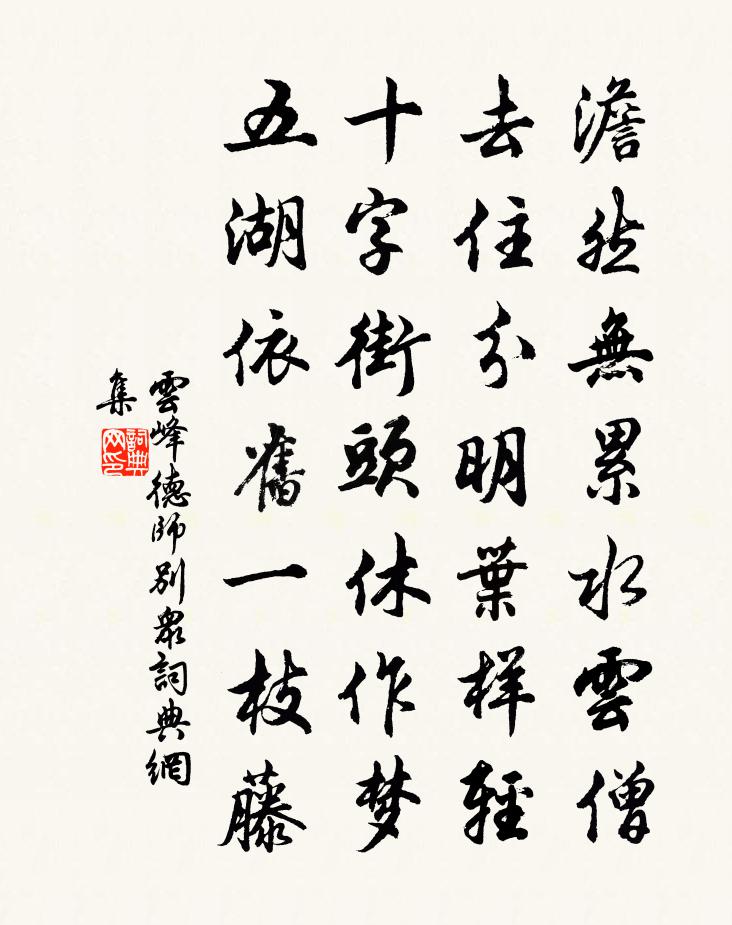 澹然無累水雲僧
去住分明葉样輕
十字街頭休作梦
五湖依舊一枝藤
雲峰德師別衆詞典網
集
詞典网印